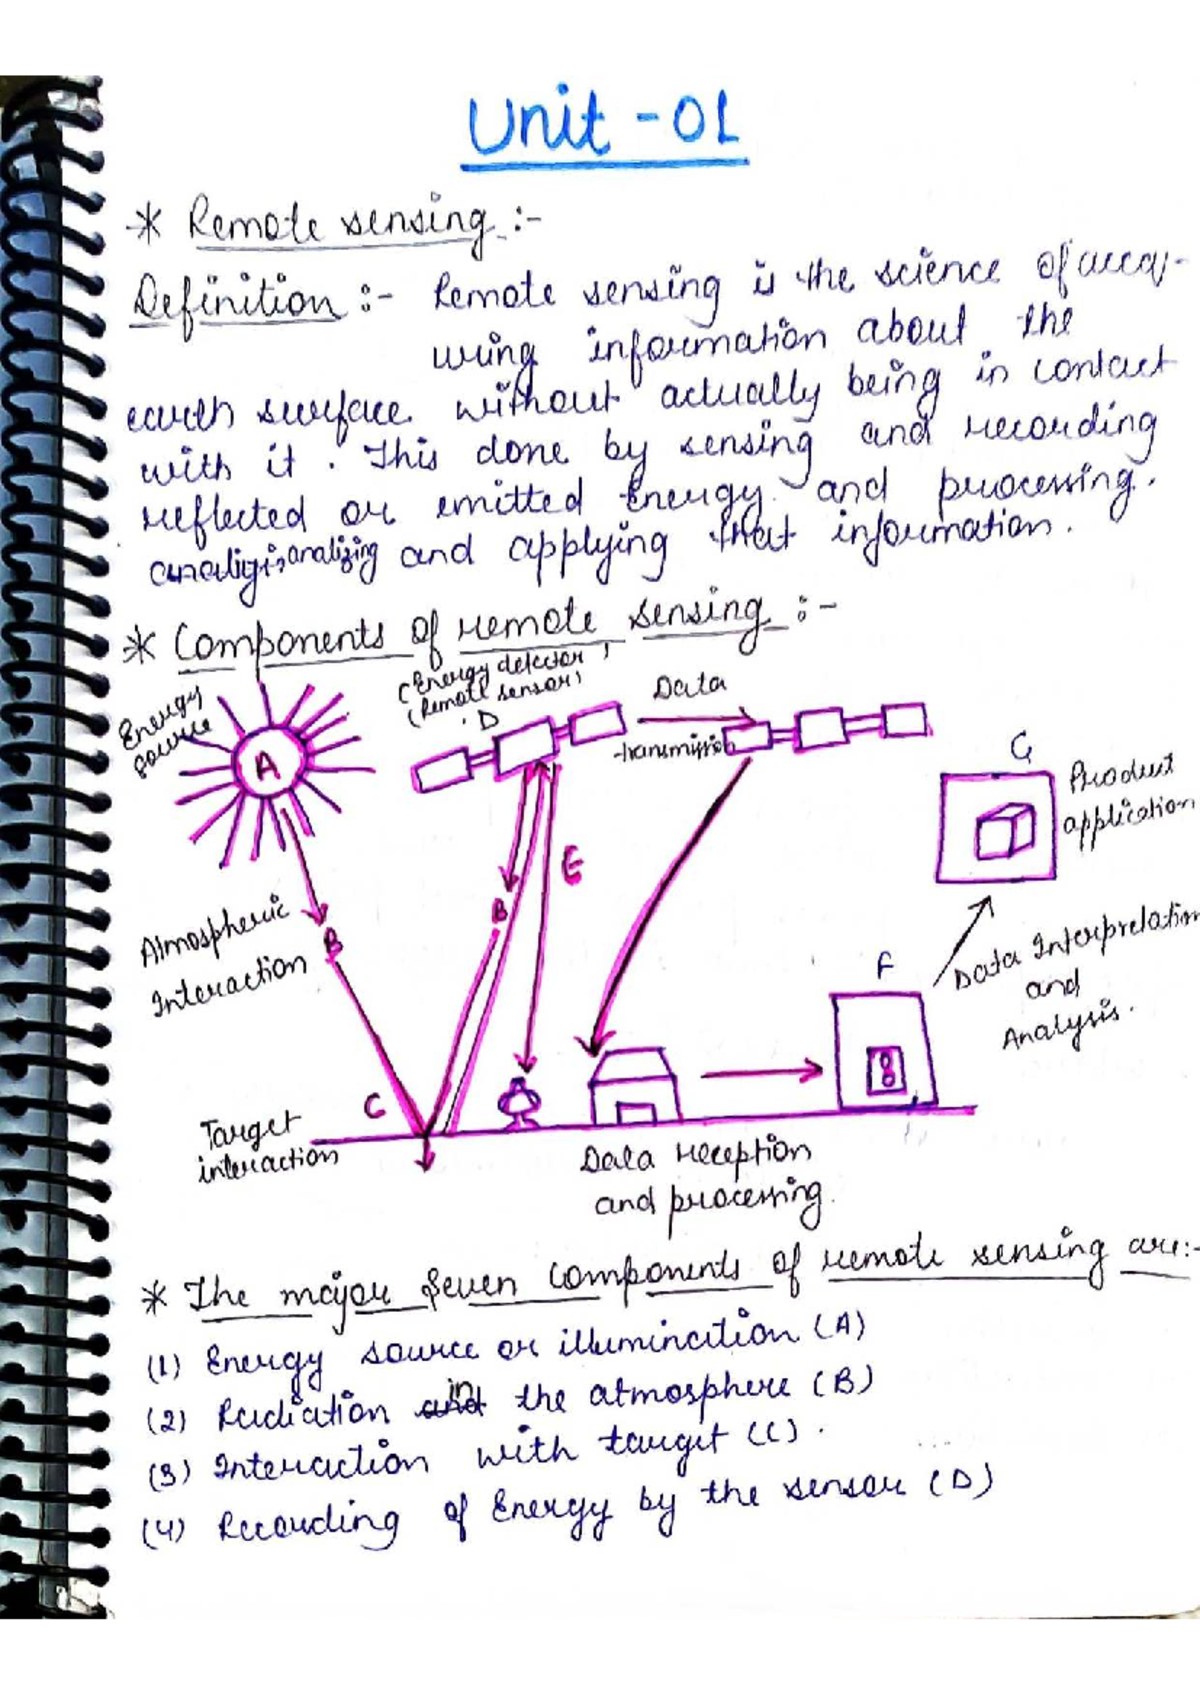 Unit - 01
* Remote sensing :-
Definition :- Remote sensing is the science of accq-
uring information about the
earth surface without actually being in contact
with it. This done by sensing and recording
reflected or emitted Energy and processing.
analizing and applying that information.
* Components of remote sensing :-
Energy source
(Energy detector,
(Remote sensor)
D
Data
transmission
A
G
Product
application
E
B
B
Atmospheric
Interaction
F
Data Interpretation
and
Analysis.
C
Target
interaction
Data reception
and processing.
* The major seven components of remote sensing are:-
(1) Energy source or illumination (A)
(2) Radiation in the atmosphere (B)
(3) Interaction with target (C).
(4) Recording of Energy by the sensor (D)